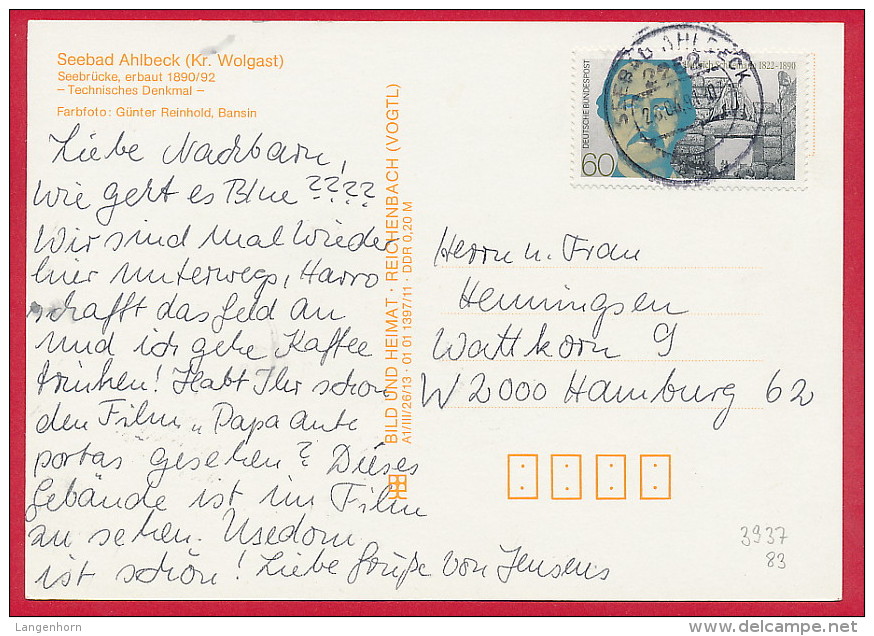 Seebad Ahlbeck (Kr. Wolgast)
Seebrücke, erbaut 1890/92
– Technisches Denkmal –
Farbfoto: Günter Reinhold, Bansin
Liebe Nachbarn,
wie geht es Blue ????
Wir sind mal wieder
hier unterwegs, Harro
schafft das Geld an
und ich gehe Kaffee
trinken! Habt Ihr schon
den Film „Papa ante
portas gesehen? Dieses
Gebäude ist im Film
zu sehen. Usedom
ist schön! Liebe Grüße von Jensens
BILD UND HEIMAT · REICHENBACH (VOGTL)
A1/III/26/13 · 01 01 1397/11 · DDR 0,20 M
DEUTSCHE BUNDESPOST
60
Schliemann 1822–1890
SEEBAD AHLBECK
2252
Herrn u. Frau
Henningsen
Wattkorn 9
W 2000 Hamburg 62
3937
83
Langenhorn
delcampe.net